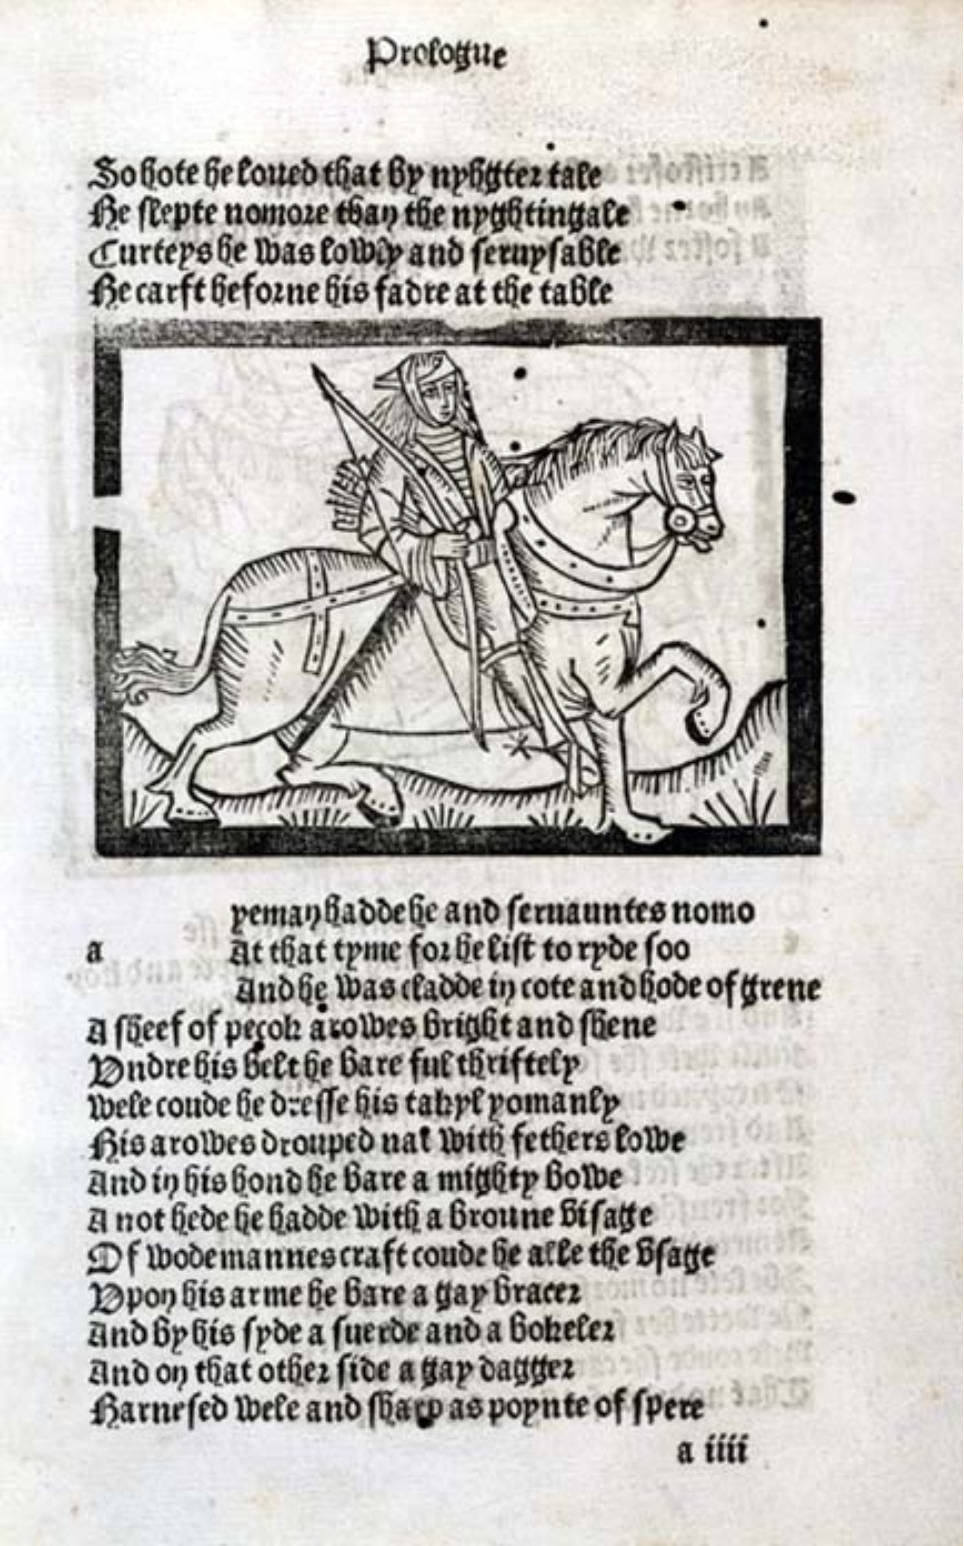 Prologue
So hote he loued that by nyhgter tale
He slepte nomore than the nyghtingale
Curteys he was lowly and seruysable
He carft beforne his fadre at the table
yeman hadde he and seruauntes nomo
a At that tyme for he list to ryde soo
And he was cladde in cote and hode of grene
A sheef of pecok arowes bright and shene
Vndre his belt he bare ful thriftely
wele coude he dresse his takyl yomanly
His arowes drouped nat with fethers lowe
And in his hond he bare a mighty bowe
A not hede he hadde with a broune visage
Of wodemannes craft coude he alle the vsage
Vpon his arme he bare a gay bracer
And by his syde a suerde and a bokeler
And on that other side a gay dagger
Harnesed wele and sharp as poynte of spere
a iiii